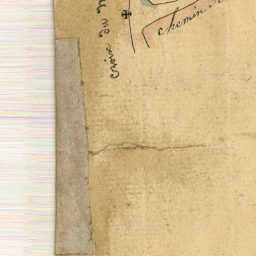 Croix du
chemin